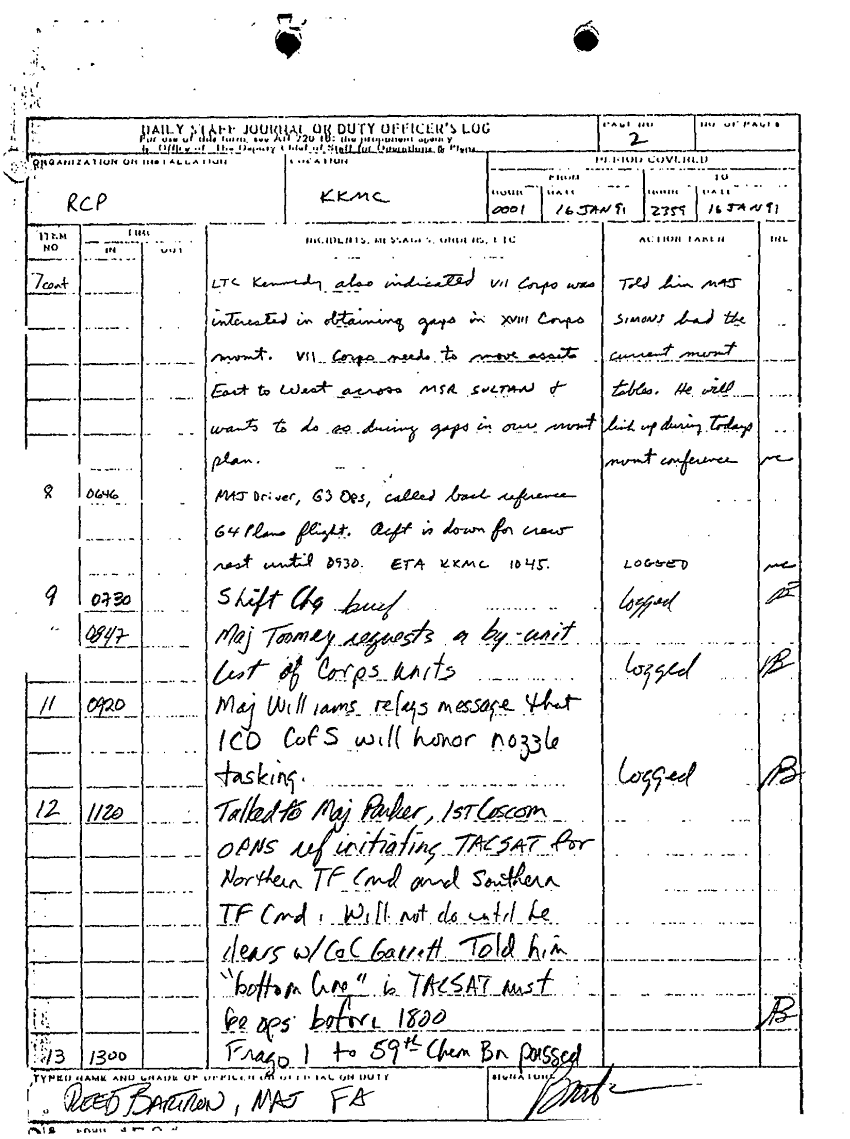 DAILY STAFF JOURNAL OR DUTY OFFICER'S LOG
For use of this form, see AR 220-15; the proponent agency
is Office of The Deputy Chief of Staff for Operations & Plans
PAGE NO
2
NO. OF PAGES
ORGANIZATION OR INSTALLATION
RCP
LOCATION
KKMC
PERIOD COVERED
FROM TO
HOUR DATE HOUR DATE
0001 16 JAN 91 2359 16 JAN 91
ITEM NO TIME IN OUT INCIDENTS, MESSAGES, ORDERS, ETC ACTION TAKEN
7cont LTC Kennedy also indicated VII Corps was Told him MAJ
interested in obtaining gaps in XVIII Corps SIMONS had the
mvmt. VII Corps needs to move assets current mvmt
East to West across MSR SULTAN & tables. He will
wants to do so during gaps in our mvmt link up during todays
plan. mvmt conference
8 0646 MAJ Driver, G3 Ops, called back reference
G4 Plans flight. Acft is down for crew
rest until 0930. ETA KKMC 1045. LOGGED
9 0730 Shift Chg brief logged
" 0847 Maj Toomey requests a by-unit
list of Corps units logged
11 0920 Maj Williams relays message that
1CD CofS will honor nozzle
tasking. logged
12 1120 Talked to Maj Parker, 1ST Coscom
OPNS ref initiating TACSAT for
Northern TF Cmd and Southern
TF Cmd. Will not do until he
clears w/Col Garrett Told him
"bottom line" is TACSAT must
be ops before 1800
13 1300 Frago 1 to 59th Chem Bn passed
TYPED NAME AND GRADE OF OFFICER OR OFFICIAL ON DUTY
REED BARTRON, MAJ FA
SIGNATURE